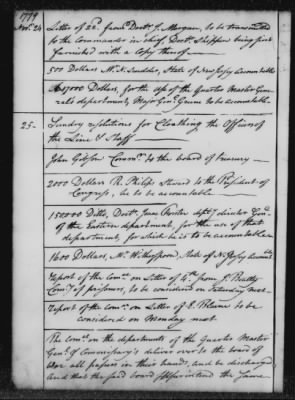 1779
Novr. 24
Letter of 22d. from Doctr. J. Morgan, to be transmitted
to the Commander in chief, Doctr. Shippen being first
furnished with a Copy thereof
500 Dollars Mr. N. Scudder, State of New Jersey accountable
Dollars, for the use of the Quarter Master Gene-
rals department, Major Genl. Greene to be accountable
25
Sundry resolutions for Cloathing the Officers of
the Line & Staff
John Gibson Commr. to the board of treasury
2000 Dollars R. Philips Steward to the President of
Congress, he to be accountable
150000 Ditto, Doctr. Isaac Foster depty. director Genl.
of the Eastern department, for the use of that
department, for which he is to be accountable
1600 Dollars, Mr. Witherspoon, State of N. Jersey accountle.
report of the comee. on Letter of 6th. from J. Beatty
Comy. of prisoners, to be considered on Saturday next
report of the comee. on Letter of to be
considered on Monday next
The comee. on the departments of the Quarter Master
Genl. & Commissary's deliver over to the board of
War all papers in their hands, and be discharged
and that the said board superintend the same